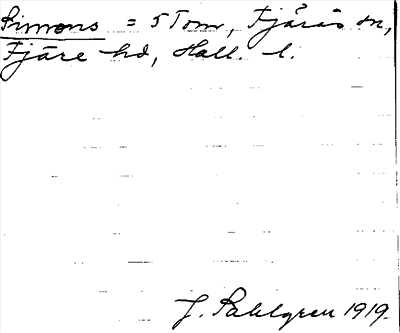 Simons = 5 Tom, Fjärås sn,
Fjäre hd, Hall. l.
J. Sahlgren 1919.